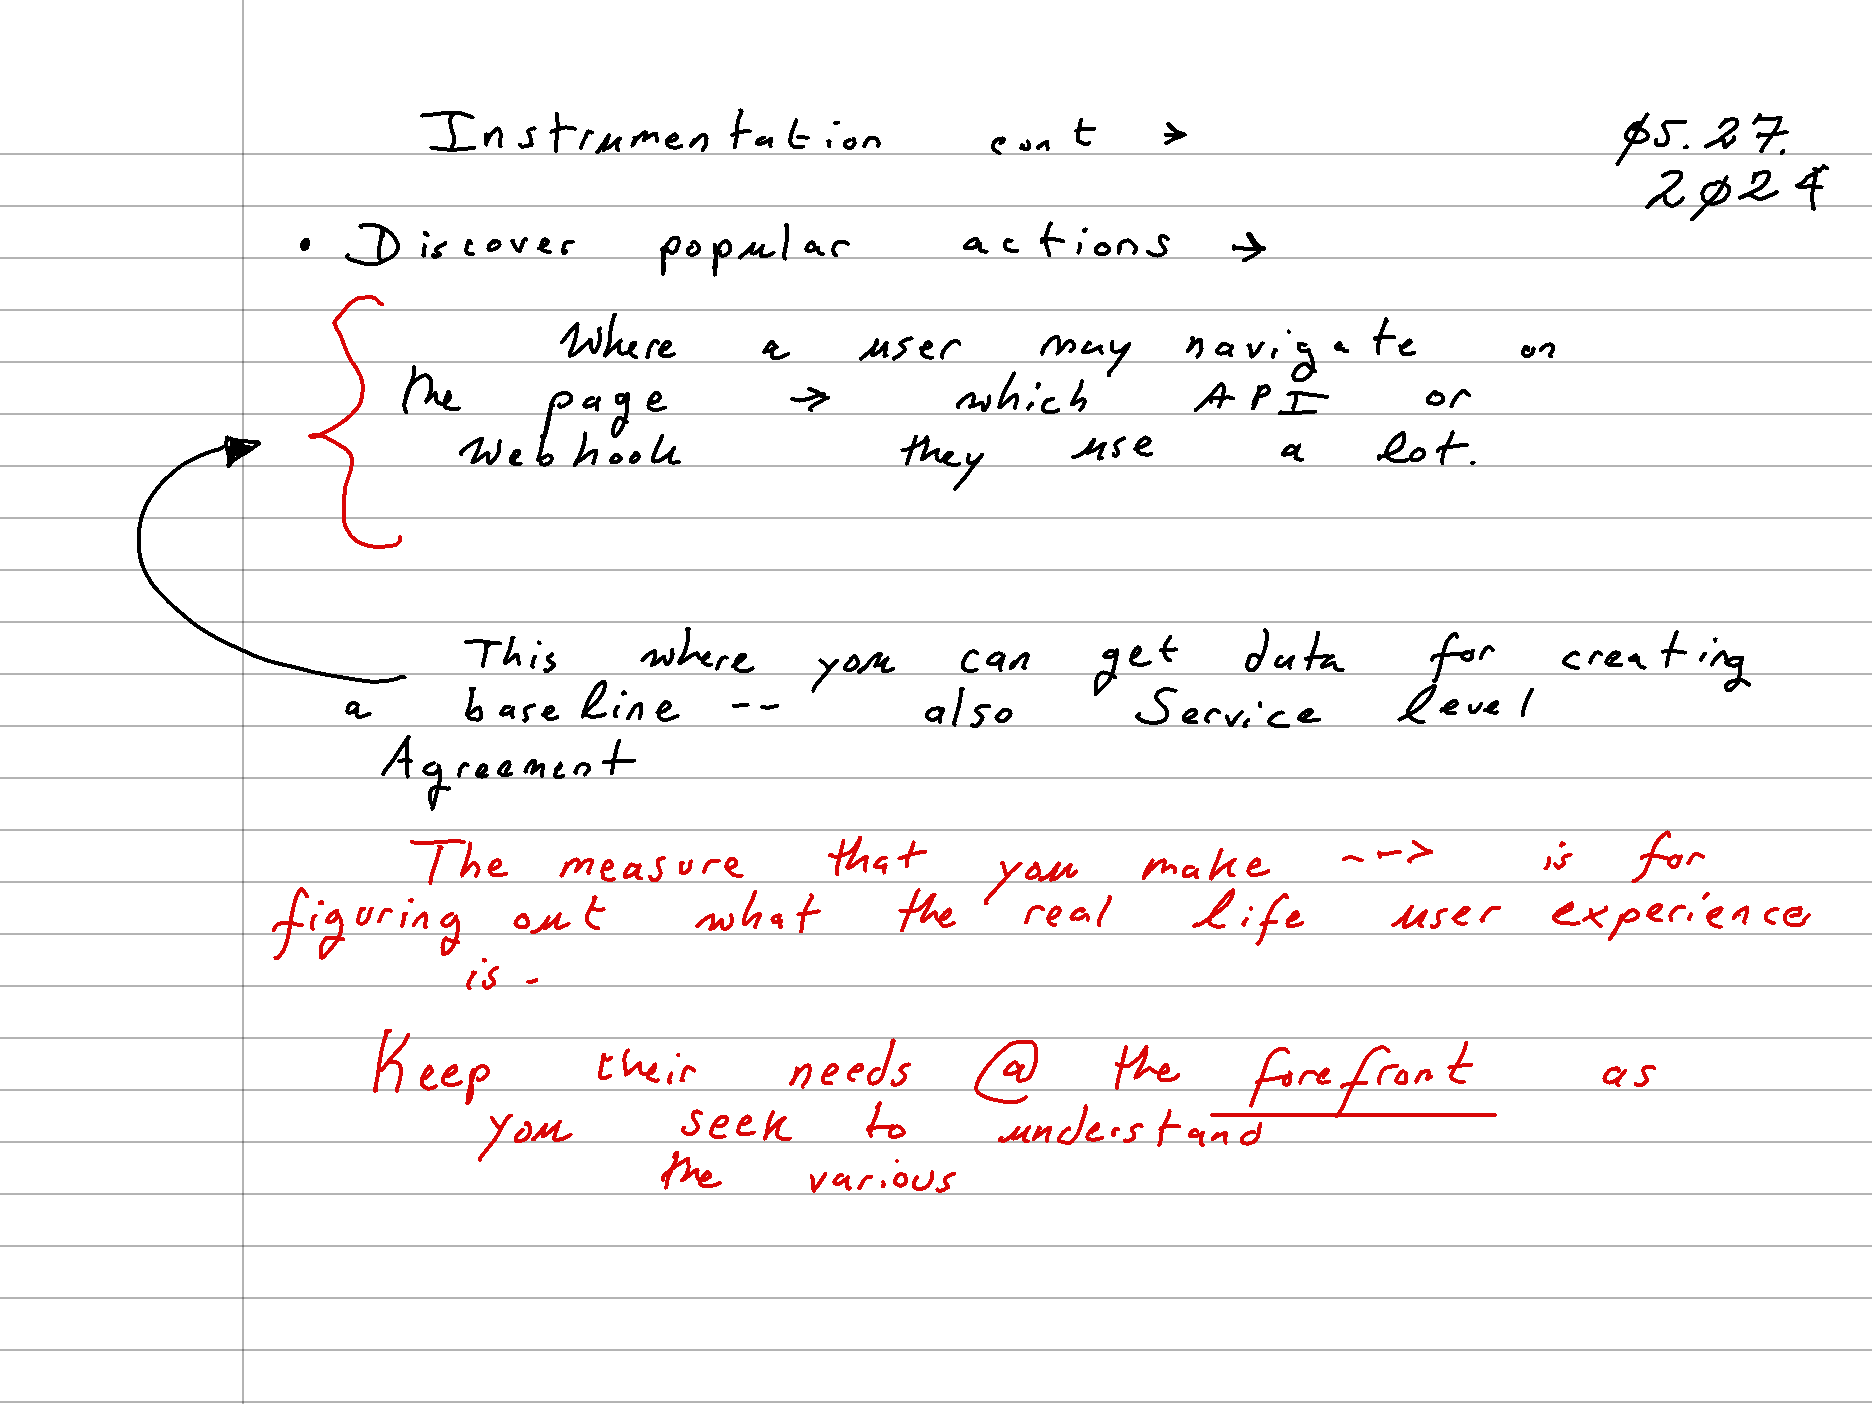 Instrumentation cont →
ø5.27.
2ø24
• Discover popular actions →
Where a user may navigate on
the page → which API or
Webhook they use a lot.
This where you can get data for creating
a baseline -- also Service level
Agreement
The measure that you make ---> is for
figuring out what the real life user experience
is -
Keep their needs @ the forefront as
you seek to understand
the various